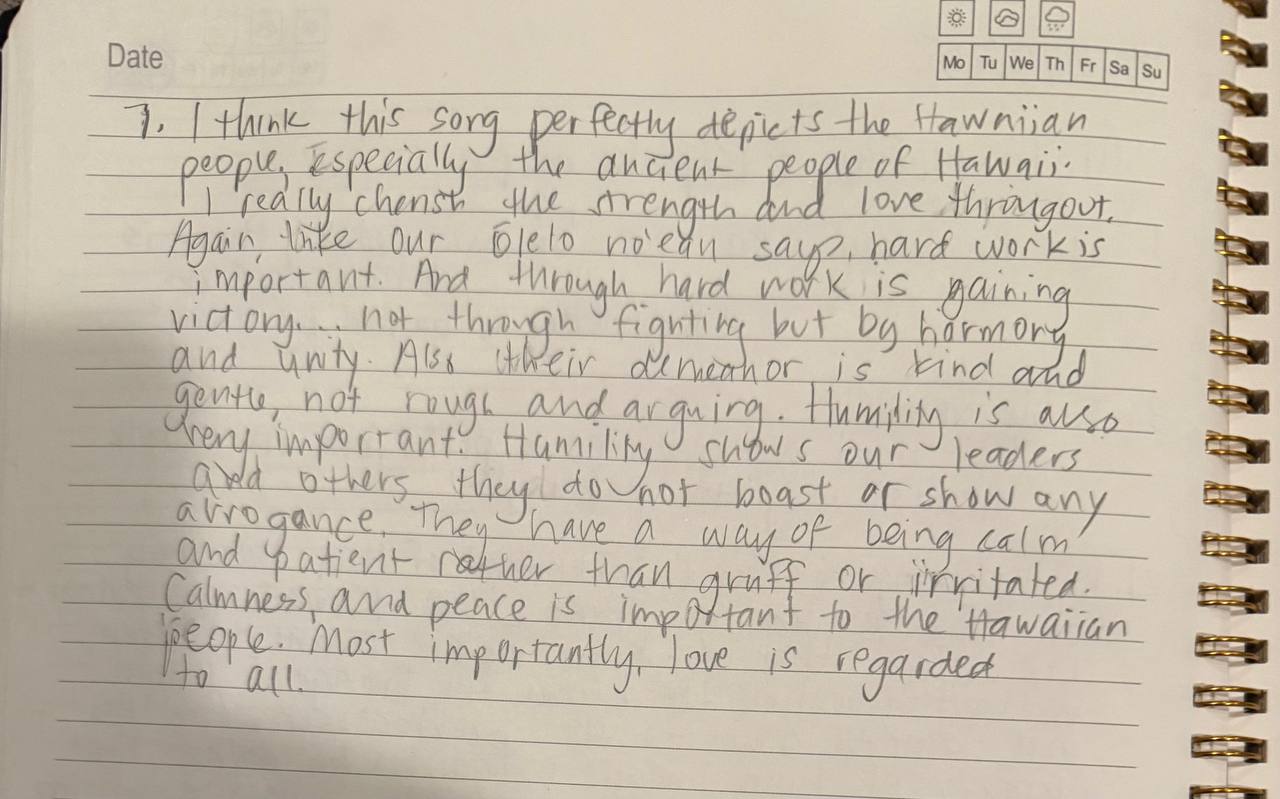 Date
Mo Tu We Th Fr Sa Su
7. I think this song perfectly depicts the Hawaiian
people, especially the ancient people of Hawaii.
I really cherish the strength and love througout.
Again, like our ōlelo no'eau says, hard work is
important. And through hard work is gaining
victory... not through fighting but by harmony
and unity. Also their demeanor is kind and
gentle, not rough and arguing. Humility is also
very important. Humility shows our leaders
and others they do not boast or show any
arrogance. They have a way of being calm
and patient rather than gruff or irritated.
Calmness and peace is important to the Hawaiian
people. Most importantly, love is regarded
to all.